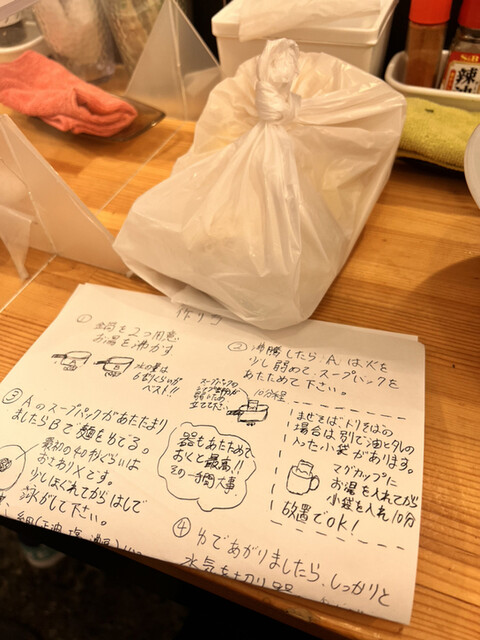 作り方
① 鍋を2つ用意
お湯を沸かす
水の量は
6割くらいが
ベスト!!
② 沸騰したら、Aは火を
少し弱めて、スープパックを
あたためて下さい。
スープパックの
10分程
立て
③ Aのスープパックがあたたまり
ましたらBで麺を茹でる。
最初の40秒ぐらいは
おさわりXです。
少しほぐれてからはしで
泳がして下さい。
器もあたためて
おくと最高!!
この一手間大事。
まぜそば、ドリそばの
場合は別で油とタレの
入った小袋があります。
マグカップに
お湯を入れてから
小袋を入れ10分
放置でOK!
④ ゆであがりましたら、しっかりと
水気を切り器
S&B
辣